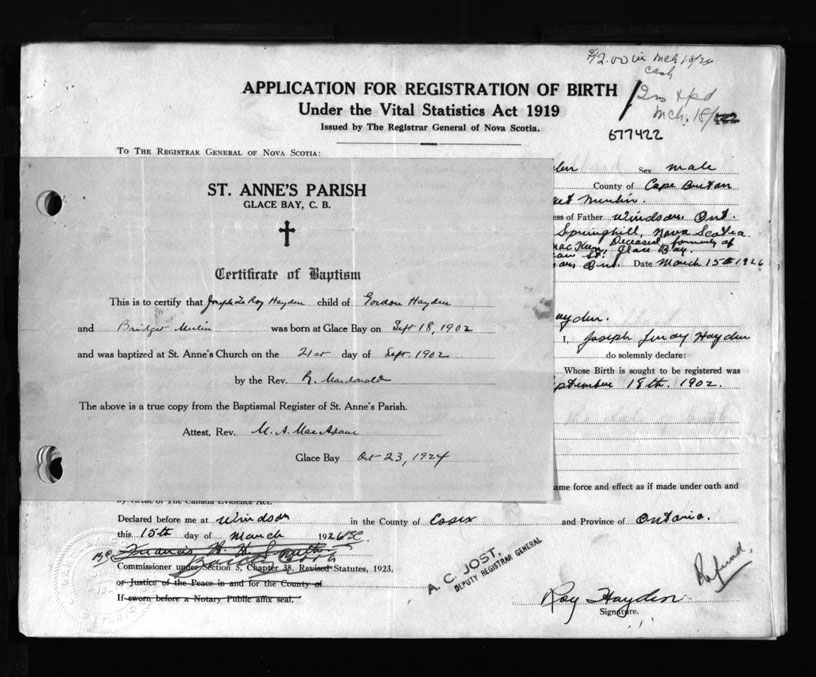 $2.00 in Mch 18/26
cash
Mch. 18/
677422
APPLICATION FOR REGISTRATION OF BIRTH
Under the Vital Statistics Act 1919
Issued by The Registrar General of Nova Scotia.
To The Registrar General of Nova Scotia:
Sex male
County of Cape Breton
et Merlin.
ess of Father Windsor, Ont.
Springhill, Nova Scotia.
Deceased, formerly of
Glace Bay.
Ont. Date March 15th 1926
ST. ANNE'S PARISH
GLACE BAY, C. B.
Certificate of Baptism
This is to certify that Joseph Le Roy Hayden child of Gordon Hayden
and Bridget Merlin was born at Glace Bay on Sept 18, 1902
and was baptized at St. Anne's Church on the 21st day of Sept. 1902
by the Rev. R. Macdonald
The above is a true copy from the Baptismal Register of St. Anne's Parish.
Attest, Rev. M. A. MacAdam
Glace Bay Oct 23, 1924
ayden.
I, Joseph Leroy Hayden
do solemnly declare:
Whose Birth is sought to be registered was
ptember 18th. 1902.
ame force and effect as if made under oath and
by virtue of The Canada Evidence Act.
Declared before me at Windsor in the County of Essex and Province of Ontario.
this 15th day of March 1926
Commissioner under Section 5, Chapter 38, Revised Statutes, 1923.
or Justice of the Peace in and for the County of
If sworn before a Notary Public affix seal.
A. C. JOST,
DEPUTY REGISTRAR GENERAL
Refund.
Roy Hayden
Signature.